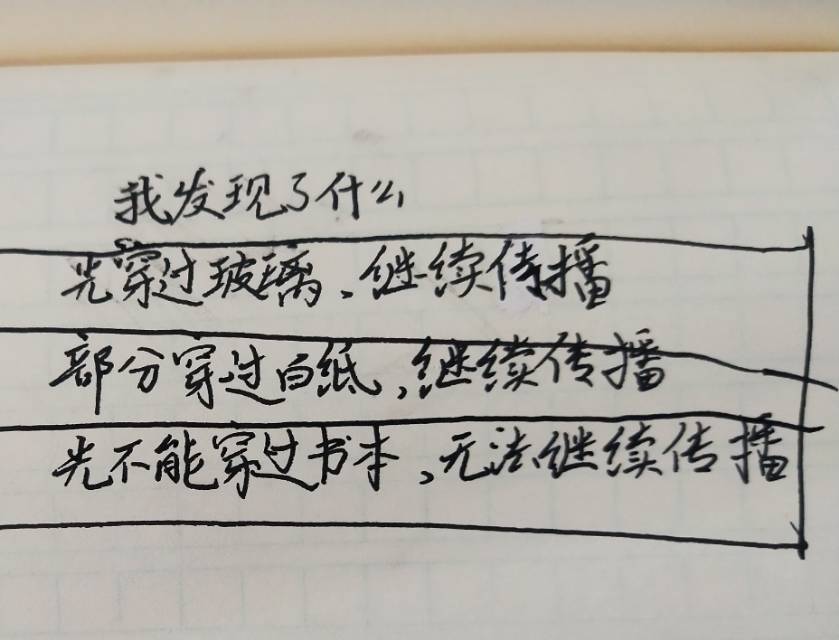 我发现了什么
光穿过玻璃、继续传播
部分穿过白纸,继续传播
光不能穿过书本,无法继续传播